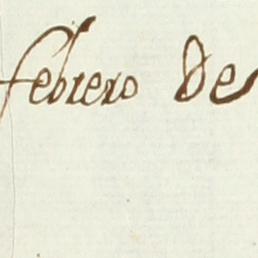 febrero de